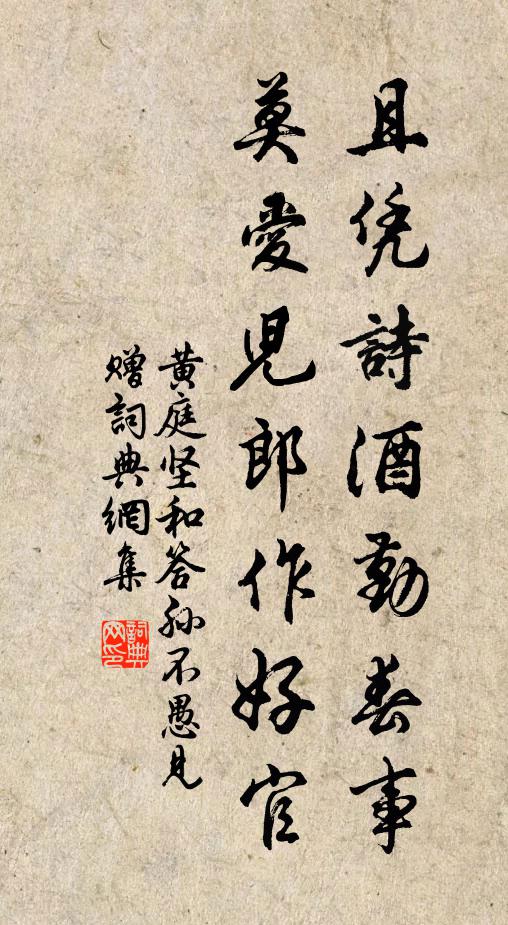 且凭詩酒勤春事
莫愛兒郎作好官
黄庭坚和答孙不愚見
赠詞典網集
詞典
网印